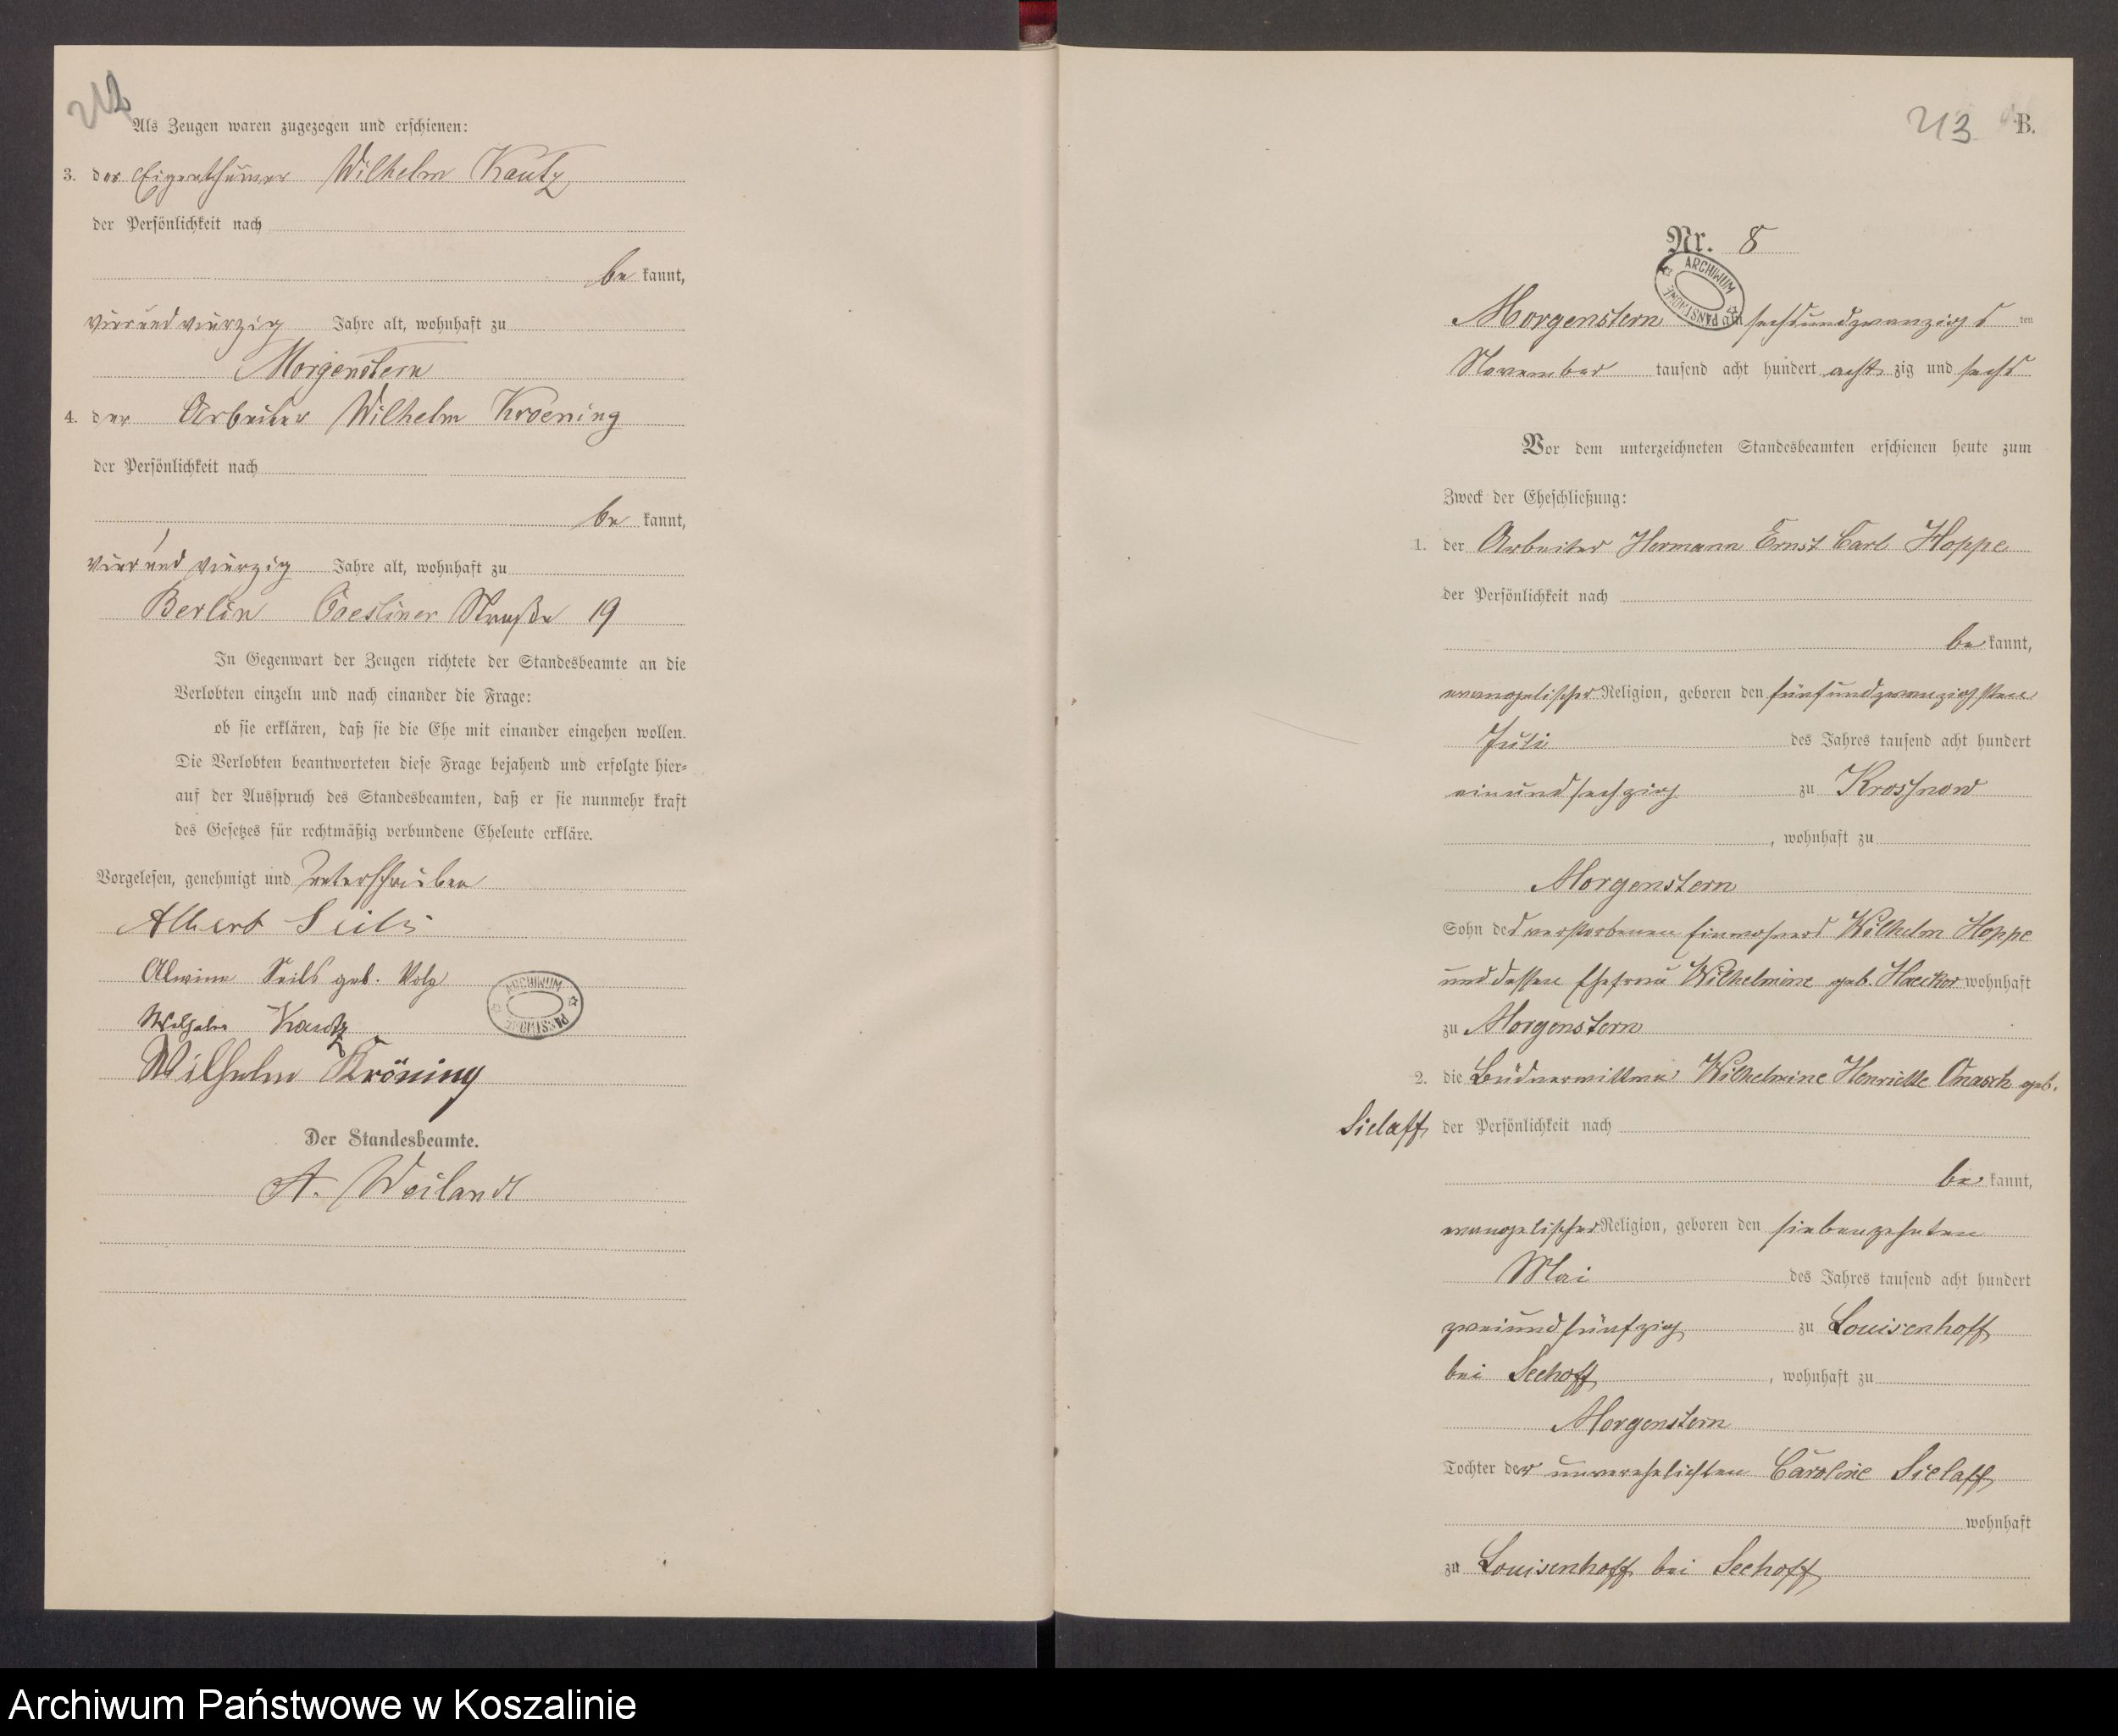 212
Als Zeugen waren zugezogen und erschienen:
3. der Eigenthümer Wilhelm Kautz
der Persönlichkeit nach
be kannt,
vierundvierzig Jahre alt, wohnhaft zu
Morgenstern
4. der Arbeiter Wilhelm Kroening
der Persönlichkeit nach
be kannt,
vierundvierzig Jahre alt, wohnhaft zu
Berlin Coesliner Straße 19
In Gegenwart der Zeugen richtete der Standesbeamte an die
Verlobten einzeln und nach einander die Frage:
ob sie erklären, daß sie die Ehe mit einander eingehen wollen.
Die Verlobten beantworteten diese Frage bejahend und erfolgte hier-
auf der Ausspruch des Standesbeamten, daß er sie nunmehr kraft
des Gesetzes für rechtmäßig verbundene Eheleute erkläre.
Vorgelesen, genehmigt und unterschrieben
Albert Seils
Alwine Seils geb. Volz
Wilhelm Kautz
Wilhelm Kröning
ARCHIWUM PAŃSTWOWE
Der Standesbeamte.
A. Weilandt
213 B.
Nr. 8
ARCHIWUM PAŃSTWOWE
Morgenstern am sechsundzwanzigs ten
November tausend acht hundert acht zig und sechs
Vor dem unterzeichneten Standesbeamten erschienen heute zum
Zweck der Eheschließung:
1. der Arbeiter Hermann Ernst Carl Hoppe
der Persönlichkeit nach
be kannt,
evangelischer Religion, geboren den fünfundzwanzigsten
Juli des Jahres tausend acht hundert
einundsechzig zu Krossnow
, wohnhaft zu
Morgenstern
Sohn des verstorbenen Einwohners Wilhelm Hoppe
und dessen Ehefrau Wilhelmine geb. wohnhaft
zu Morgenstern
2. die Büdnerwittwe Wilhelmine Henriette Onasch geb.
Sielaff der Persönlichkeit nach
be kannt,
evangelischer Religion, geboren den siebenzehnten
Mai des Jahres tausend acht hundert
zweiundfünfzig zu Louisenhoff
bei Seehoff, wohnhaft zu
Morgenstern
Tochter der unverehelichten Caroline Sielaff
wohnhaft
zu Louisenhoff bei Seehoff
Archiwum Państwowe w Koszalinie